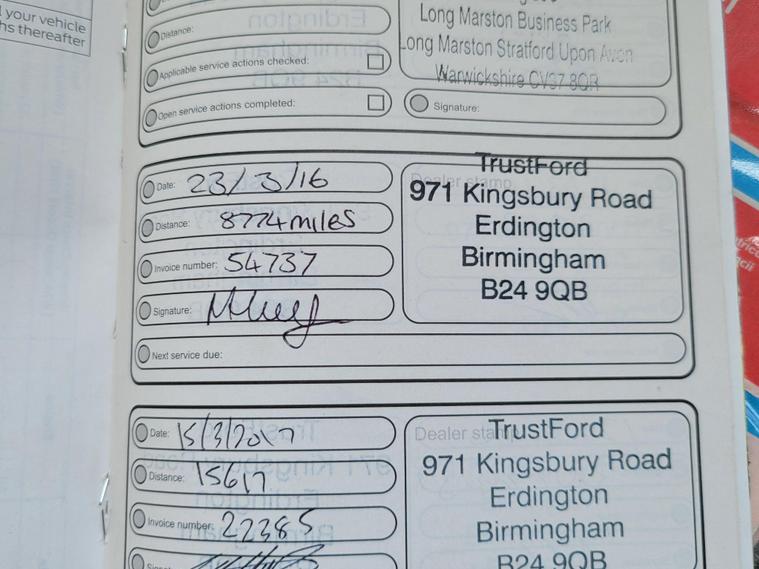 your vehicle
hs thereafter
Distance:
Applicable service actions checked:
Open service actions completed:
Long Marston Business Park
Long Marston Stratford Upon Avon
Warwickshire CV37 8QR
Signature:
Date: 23/3/16
Distance: 8774 miles
Invoice number: 54737
Signature:
Next service due:
Dealer stamp
TrustFord
971 Kingsbury Road
Erdington
Birmingham
B24 9QB
Date: 15/3/2017
Distance: 15617
Invoice number: 22385
Dealer stamp
TrustFord
971 Kingsbury Road
Erdington
Birmingham
B24 9QB